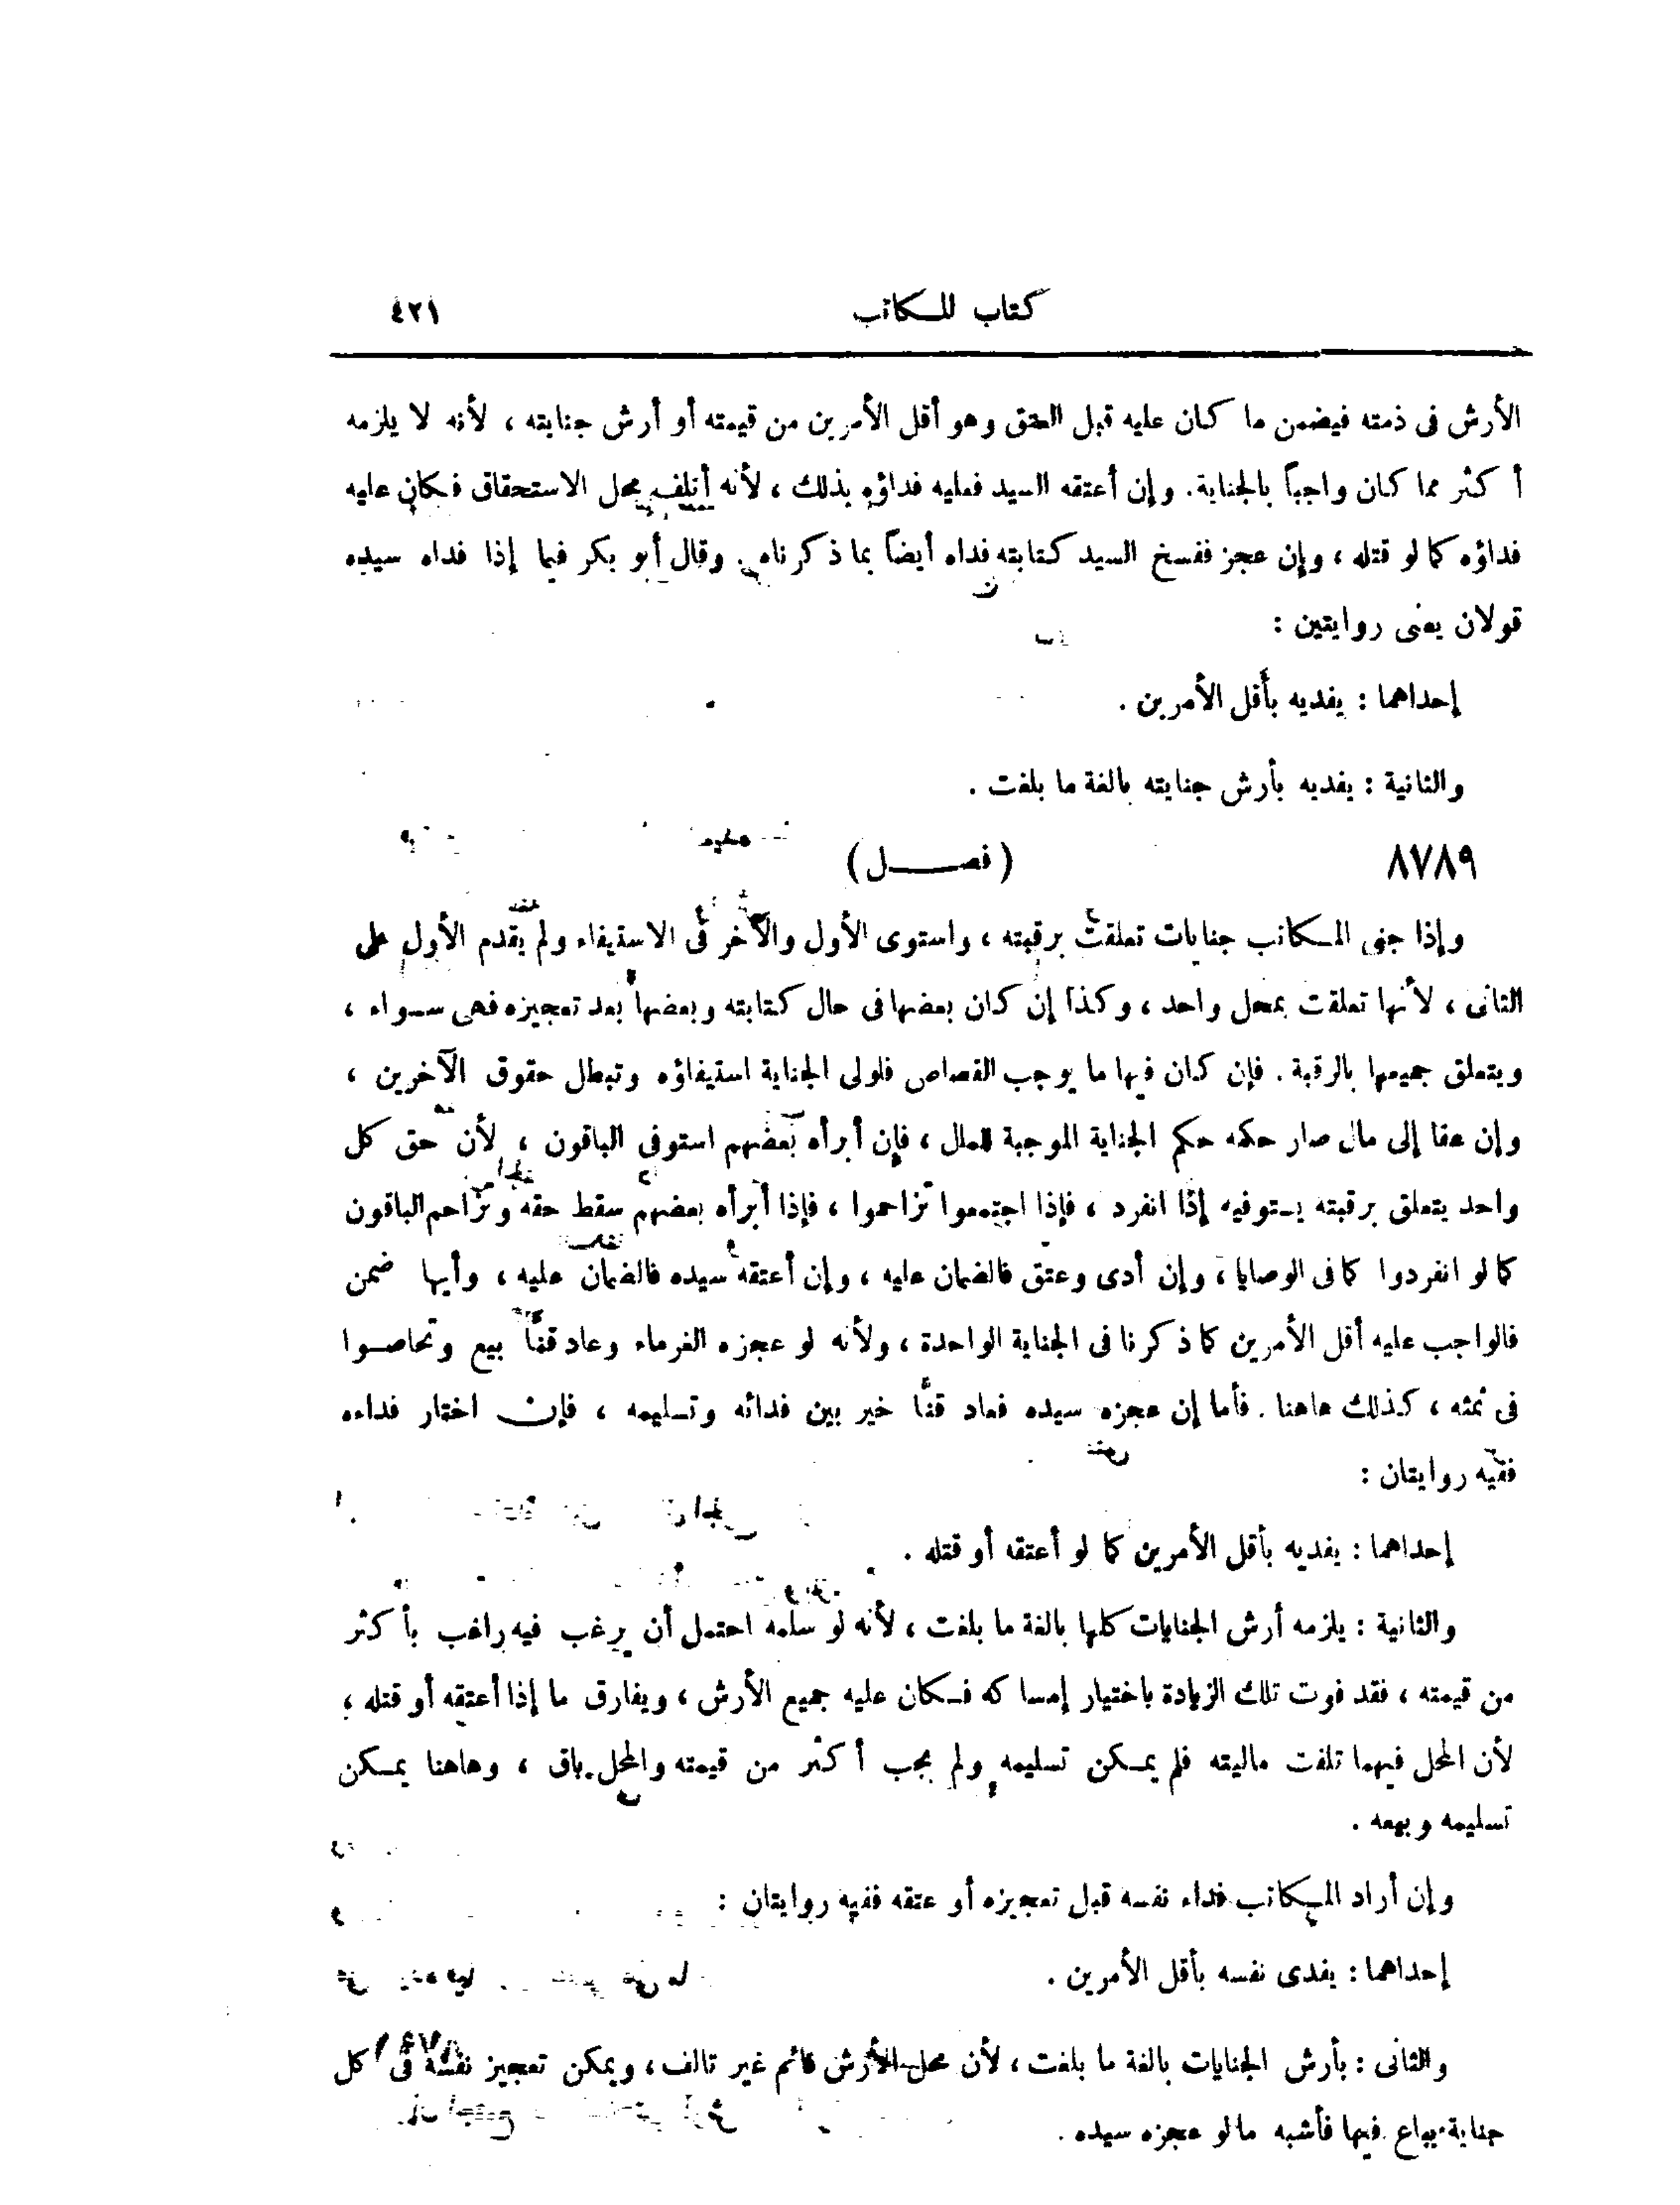 كتاب المكاتب ٤٢١
الأرش فى ذمته فيضمن ما كان عليه قبل العتق وهو أقل الأمرين من قيمته أو أرش جنايته ، لأنه لا يلزمه
أكثر مما كان واجباً بالجناية. وإن أعتقه السيد فعليه فداؤه بذلك ، لأنه أتلف محل الاستحقاق فكان عليه
فداؤه كما لو قتله ، وإن عجز ففسخ السيد كتابته فداه أيضاً بما ذكرناه . وقال أبو بكر فيما إذا فداه سيده
قولان يعنى روايتين :
إحداهما : يفديه بأقل الأمرين .
والثانية : يفديه بأرش جنايته بالغة ما بلغت .
٨٧٨٩ (فصل)
وإذا جنى المكاتب جنايات تعلقت برقبته ، واستوى الأول والآخر فى الاستيفاء ولم يقدم الأول على
الثانى ، لأنها تعلقت بمحل واحد ، وكذا إن كان بعضها فى حال كتابته وبعضها بعد تعجيزه فهى سواء ،
ويتعلق جميعها بالرقبة . فإن كان فيها ما يوجب القصاص فلولى الجناية استيفاؤه وتبطل حقوق الآخرين ،
وإن عفا إلى مال صار حكمه حكم الجناية الموجبة للمال ، فإن أبرأه بعضهم استوفى الباقون ، لأن حق كل
واحد يتعلق برقبته يستوفيه إذا انفرد ، فإذا اجتمعوا تزاحموا ، فإذا أبرأه بعضهم سقط حقه وتزاحم الباقون
كما لو انفردوا كما فى الوصايا ، وإن أدى وعتق فالضمان عليه ، وإن أعتقه سيده فالضمان عليه ، وأيها ضمن
فالواجب عليه أقل الأمرين كما ذكرنا فى الجناية الواحدة ، ولأنه لو عجزه الغرماء وعاد قنًّا بيع وتحاصوا
فى ثمنه ، كذلك هاهنا . فأما إن عجزه سيده فعاد قنًّا خير بين فدائه وتسليمه ، فإن اختار فداءه
ففيه روايتان :
إحداهما : يفديه بأقل الأمرين كما لو أعتقه أو قتله .
والثانية : يلزمه أرش الجنايات كلها بالغة ما بلغت ، لأنه لو سلمه احتمل أن يرغب فيه راغب بأكثر
من قيمته ، فقد فوت تلك الزيادة باختيار إمساكه فكان عليه جميع الأرش ، ويفارق ما إذا أعتقه أو قتله ،
لأن المحل فيهما تلفت ماليته فلم يمكن تسليمه ولم يجب أكثر من قيمته والمحل باق ، وهاهنا يمكن
تسليمه وبيعه .
وإن أراد المكاتب فداء نفسه قبل تعجيزه أو عتقه ففيه روايتان :
إحداهما : يفدى نفسه بأقل الأمرين .
والثانى : بأرش الجنايات بالغة ما بلغت ، لأن محل الأرش قائم غير تالف ، ويمكن تعجيز نفسه فى كل
جناية يباع فيها فأشبه مالو عجزه سيده .